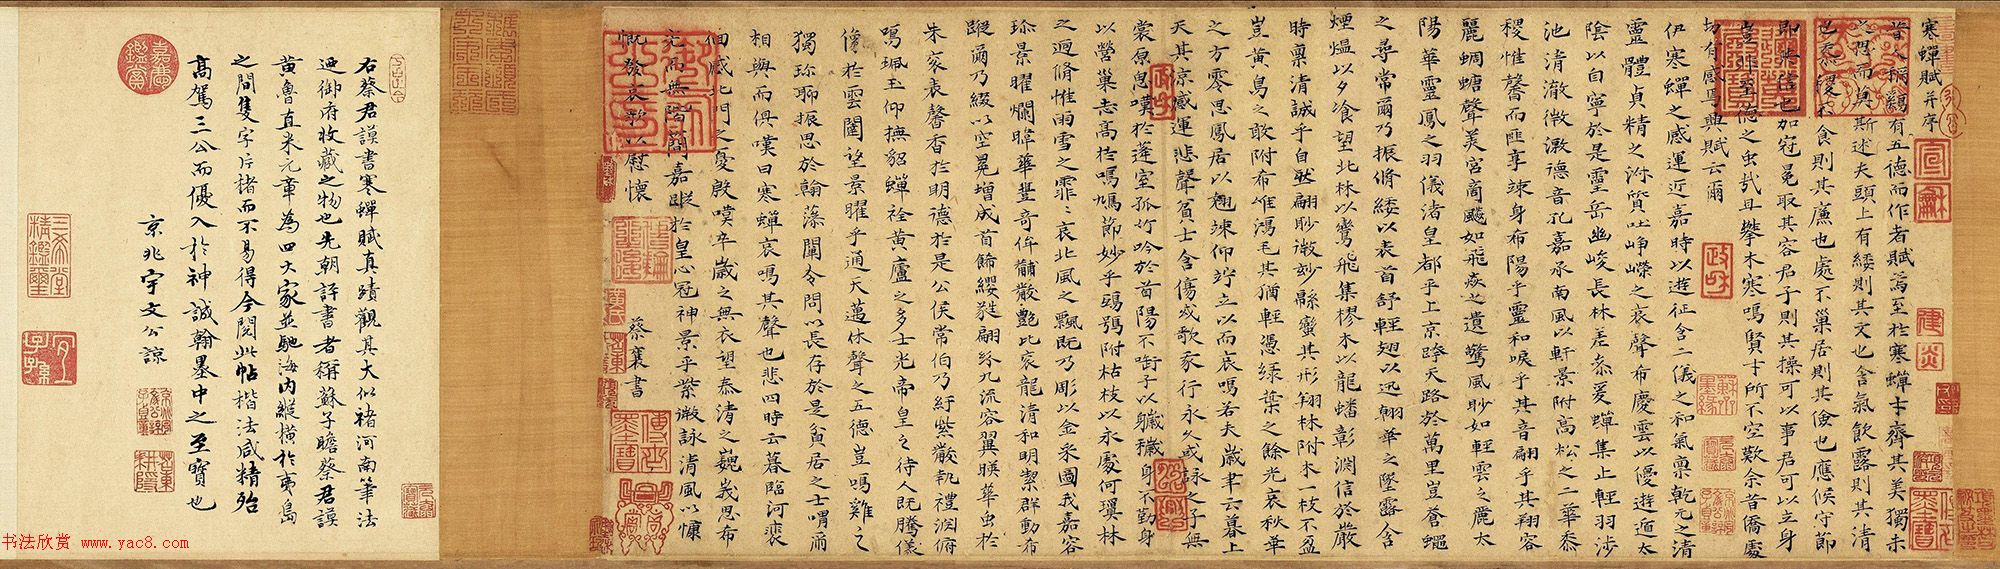 寒蟬賦并序
昔人稱鷄有五德而作者賦焉至於寒蟬才齊其美獨未
之思而莫斯述夫頭上有緌則其文也含氣飲露則其清
也黍稷不食則其廉也處不巢居則其儉也應候守節
則其信也加冠冕取其容君子則其操可以事君可以立身
豈非至德之虫哉且攀木寒鳴賢士所不空歎余昔僑處
切有感焉興賦云爾
伊寒蟬之感運近嘉時以遊征含二儀之和氣稟乾元之清
靈體貞精之淑質吐崢嶸之哀聲布慶雲以優遊遁太
陰以自寧於是靈岳幽峻長林差參爰蟬集止輕羽涉
池清澈微激德音孔嘉承南風以軒景附高松之二華黍
稷惟馨而匪享竦身布陽乎靈和唳乎其音翩乎其翔容
麗蜩螗聲美宮商飈如飛焱之遺驚風眇如輕雲之麗太
陽華靈鳳之羽儀渚皇都乎上京跨天路於萬里豈蒼蠅
之尋常爾乃振脩緌以表首舒輕翅以迅翰華之墜露含
煙熅以夕飡望北林以鸞飛集樛木以龍蟠彰淵信於嚴
時稟清誠乎自然翩眇微妙緜蠻其形翔林附木一枝不盈
豈黃鳥之敢附布惟鴻毛其猶輕憑綠葉之餘光哀秋華
之方零思鳳居以翹竦仰竚立以而哀鳴若夫歲聿云暮上
天其涼感運悲聲貧士含傷或歌家行永久或詠之子無
裳原思嘆於蓬室孤竹吟於首陽不銜子以軄穢身不勤身
以營巢志高於鳴鳩節妙乎鴟鴞附枯枝以永處何瓊林
之迥脩惟雨雪之霏霏哀北風之飄飄既乃彫以金采圖我嘉容
珍景曜爛暐華豐奇侔黼黻艷比袞龍清和明潔群動希
蹤爾乃綴以空冕增成首飾纓蕤翩紛九流容翼暎華虫於
朱袞表馨香於明德於是公侯常伯乃紆紫黻執禮淵俯
鳴珮玉仰撫貂蟬袗黃廬之多士光帝皇之待人既騰儀
像於雲闥望景曜乎通天邁休聲之五德豈鳴雞之
獨珍聊振思於翰藻闡令問以長存於是貧居之士喟爾
相與而俱嘆曰寒蟬哀鳴其聲也悲四時云暮臨河裴
徊感北門之憂殷嘆卒歲之無衣望泰清之巍峩思希
光而無階簡嘉蹤於皇心冠神景乎紫微詠清風以慷
慨發哀歌以慰懷
蔡襄書
右蔡君謨書寒蟬賦真蹟觀其大似褚河南筆法
迺御府收藏之物也先朝評書者稱蘇子瞻蔡君謨
黃魯直米元章為四大家並馳海內縱橫於夷島
之間隻字片楮而不易得今閱此帖楷法咸精殆
高駕三公而優入於神誠翰墨中之至寶也
京兆宇文公諒
书法欣赏 www.yac8.com